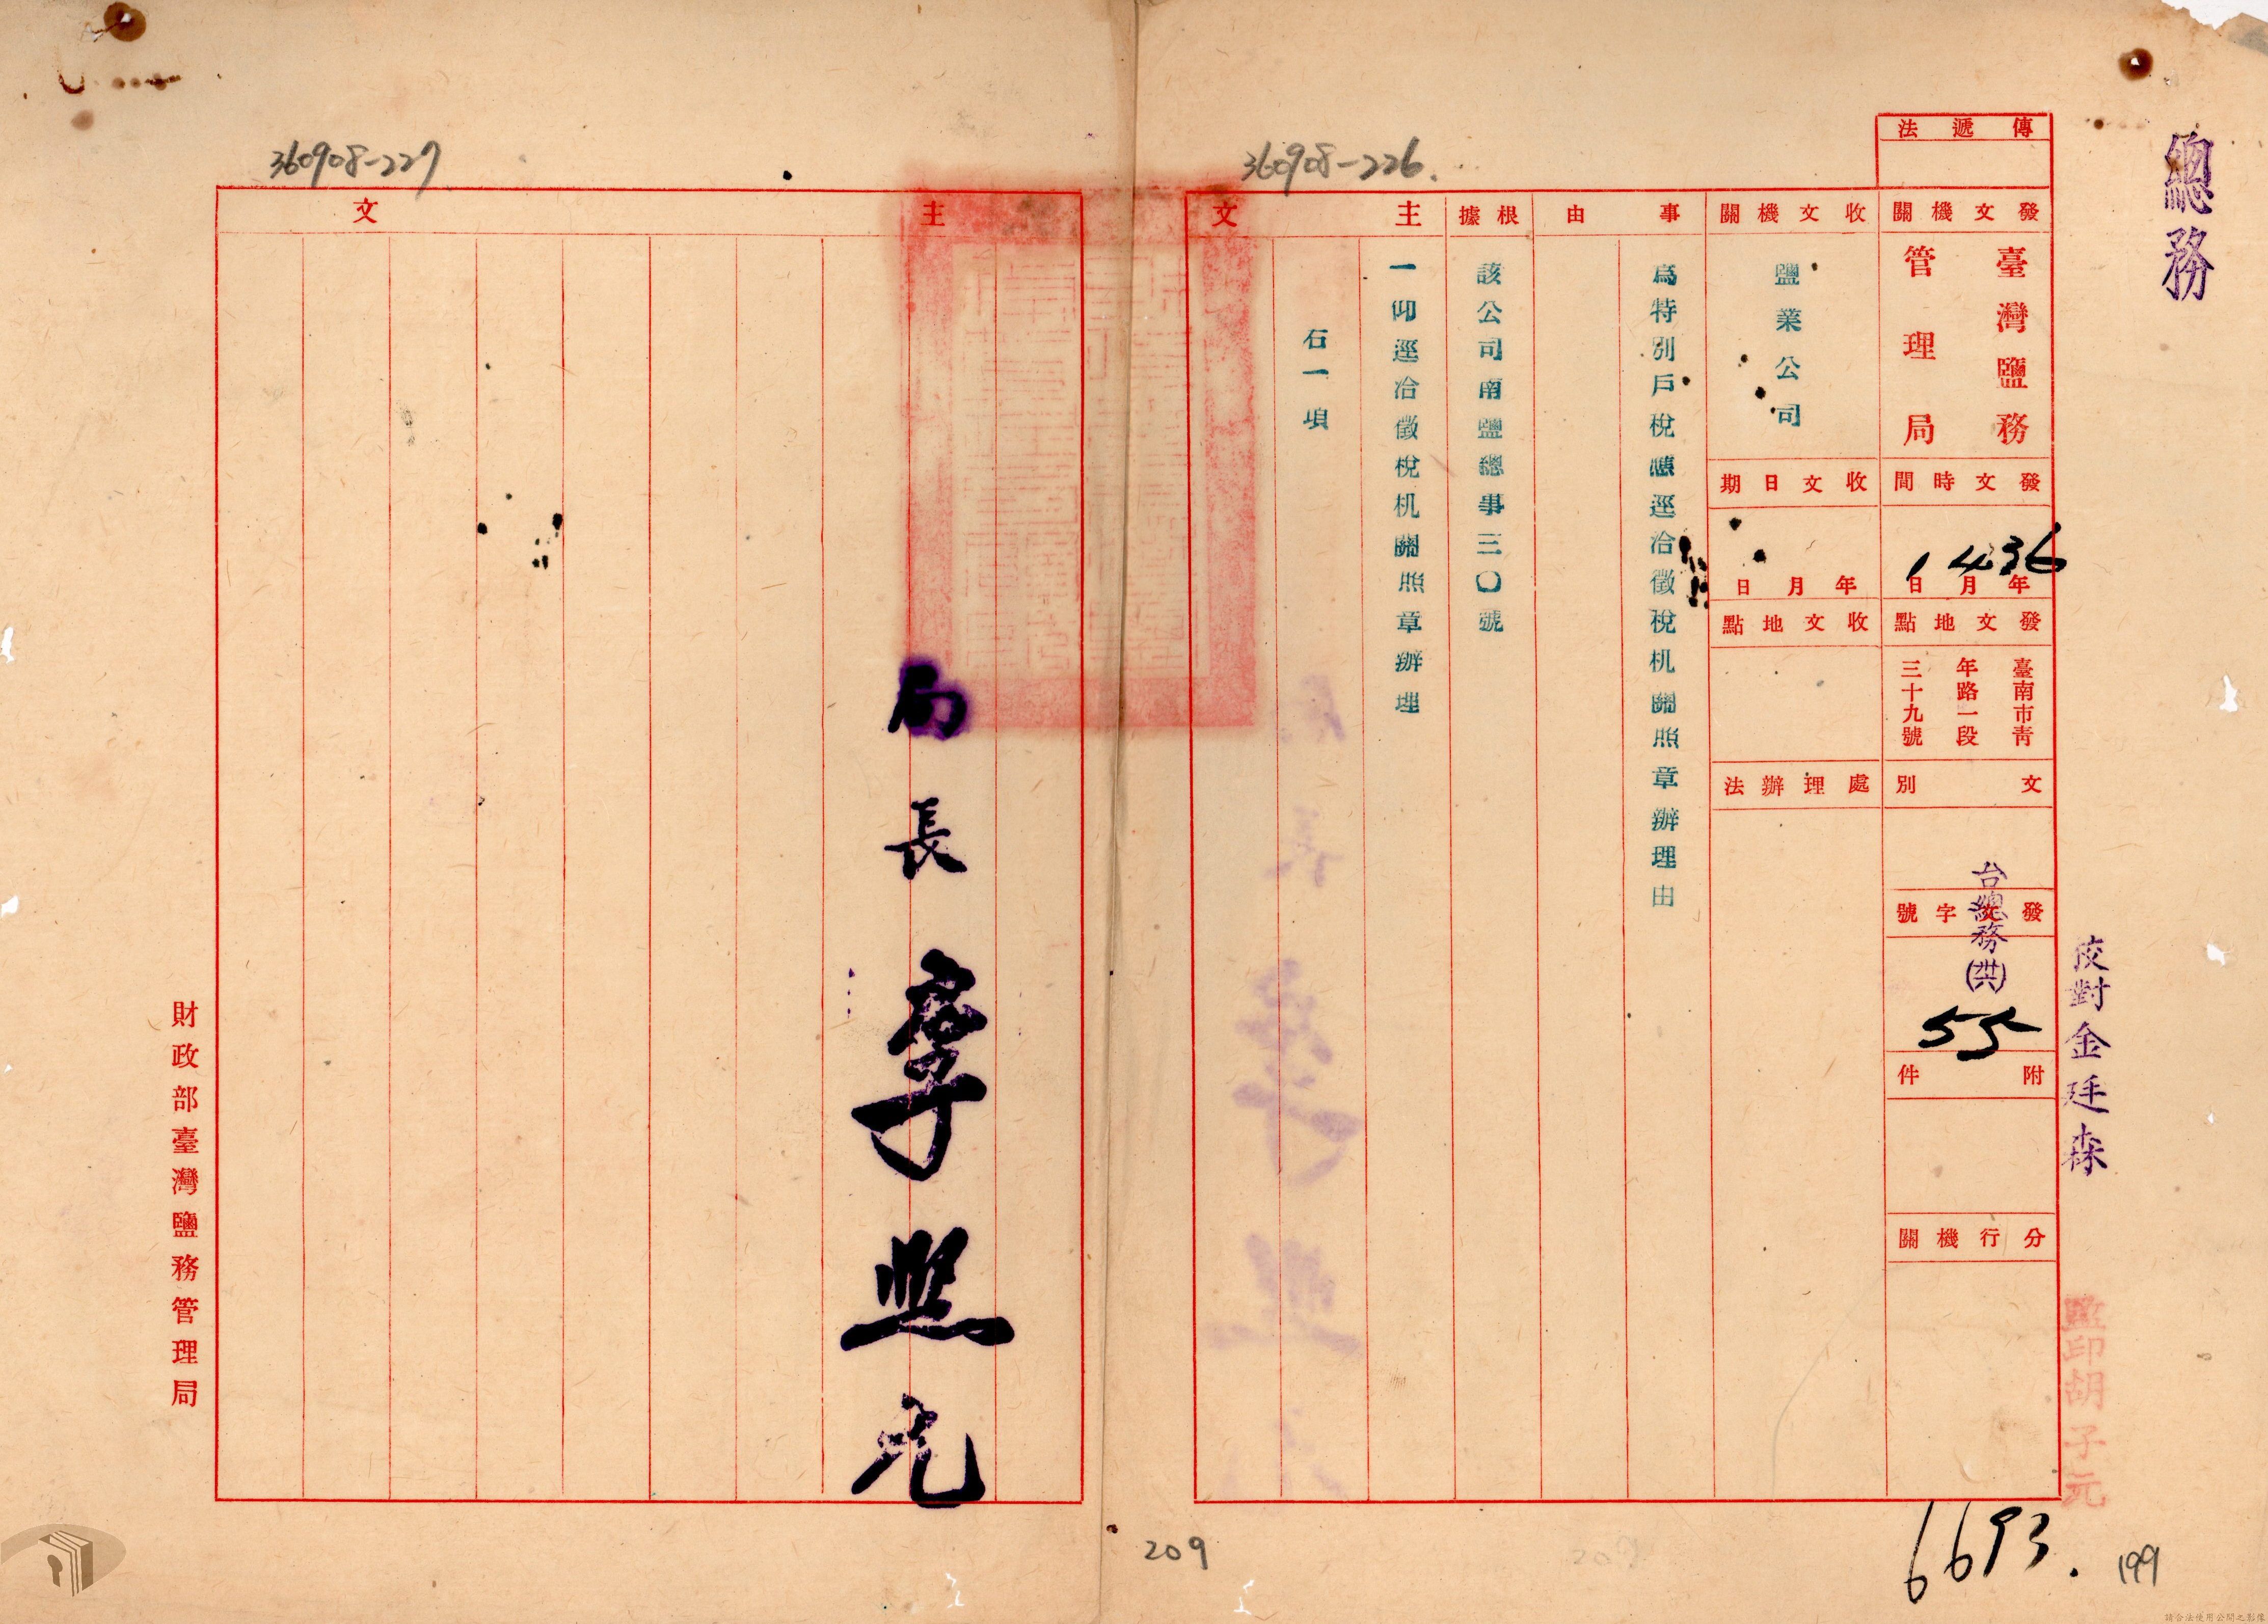 總務
傳遞法
發文機關
臺灣鹽務
管理局
發文時間
36年4月1日
發文地點
臺南市靑
年路一段
三十九號
文別
發文字號
台總務(共)
55
附件
分行機關
校對金廷森
監印胡子元
收文機關
鹽業公司
收文日期
年月日
收文地點
處理辦法
事由
爲特別戶稅應逕洽徵稅机關照章辦理由
根據
該公司南鹽總事三〇號
主文
一仰逕洽徵稅机關照章辦理
右一項
360908-226.
主文
局長李照光
360908-227
財政部臺灣鹽務管理局
209
6693.
199
請合法使用公開之影像